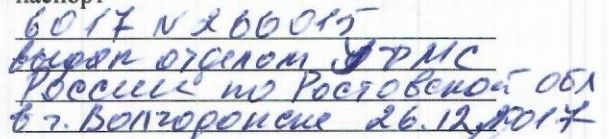 паспорт
6017 N 266015
выдан отделом УФМС
России по Ростовской обл
в г. Волгодонске 26.12.2017